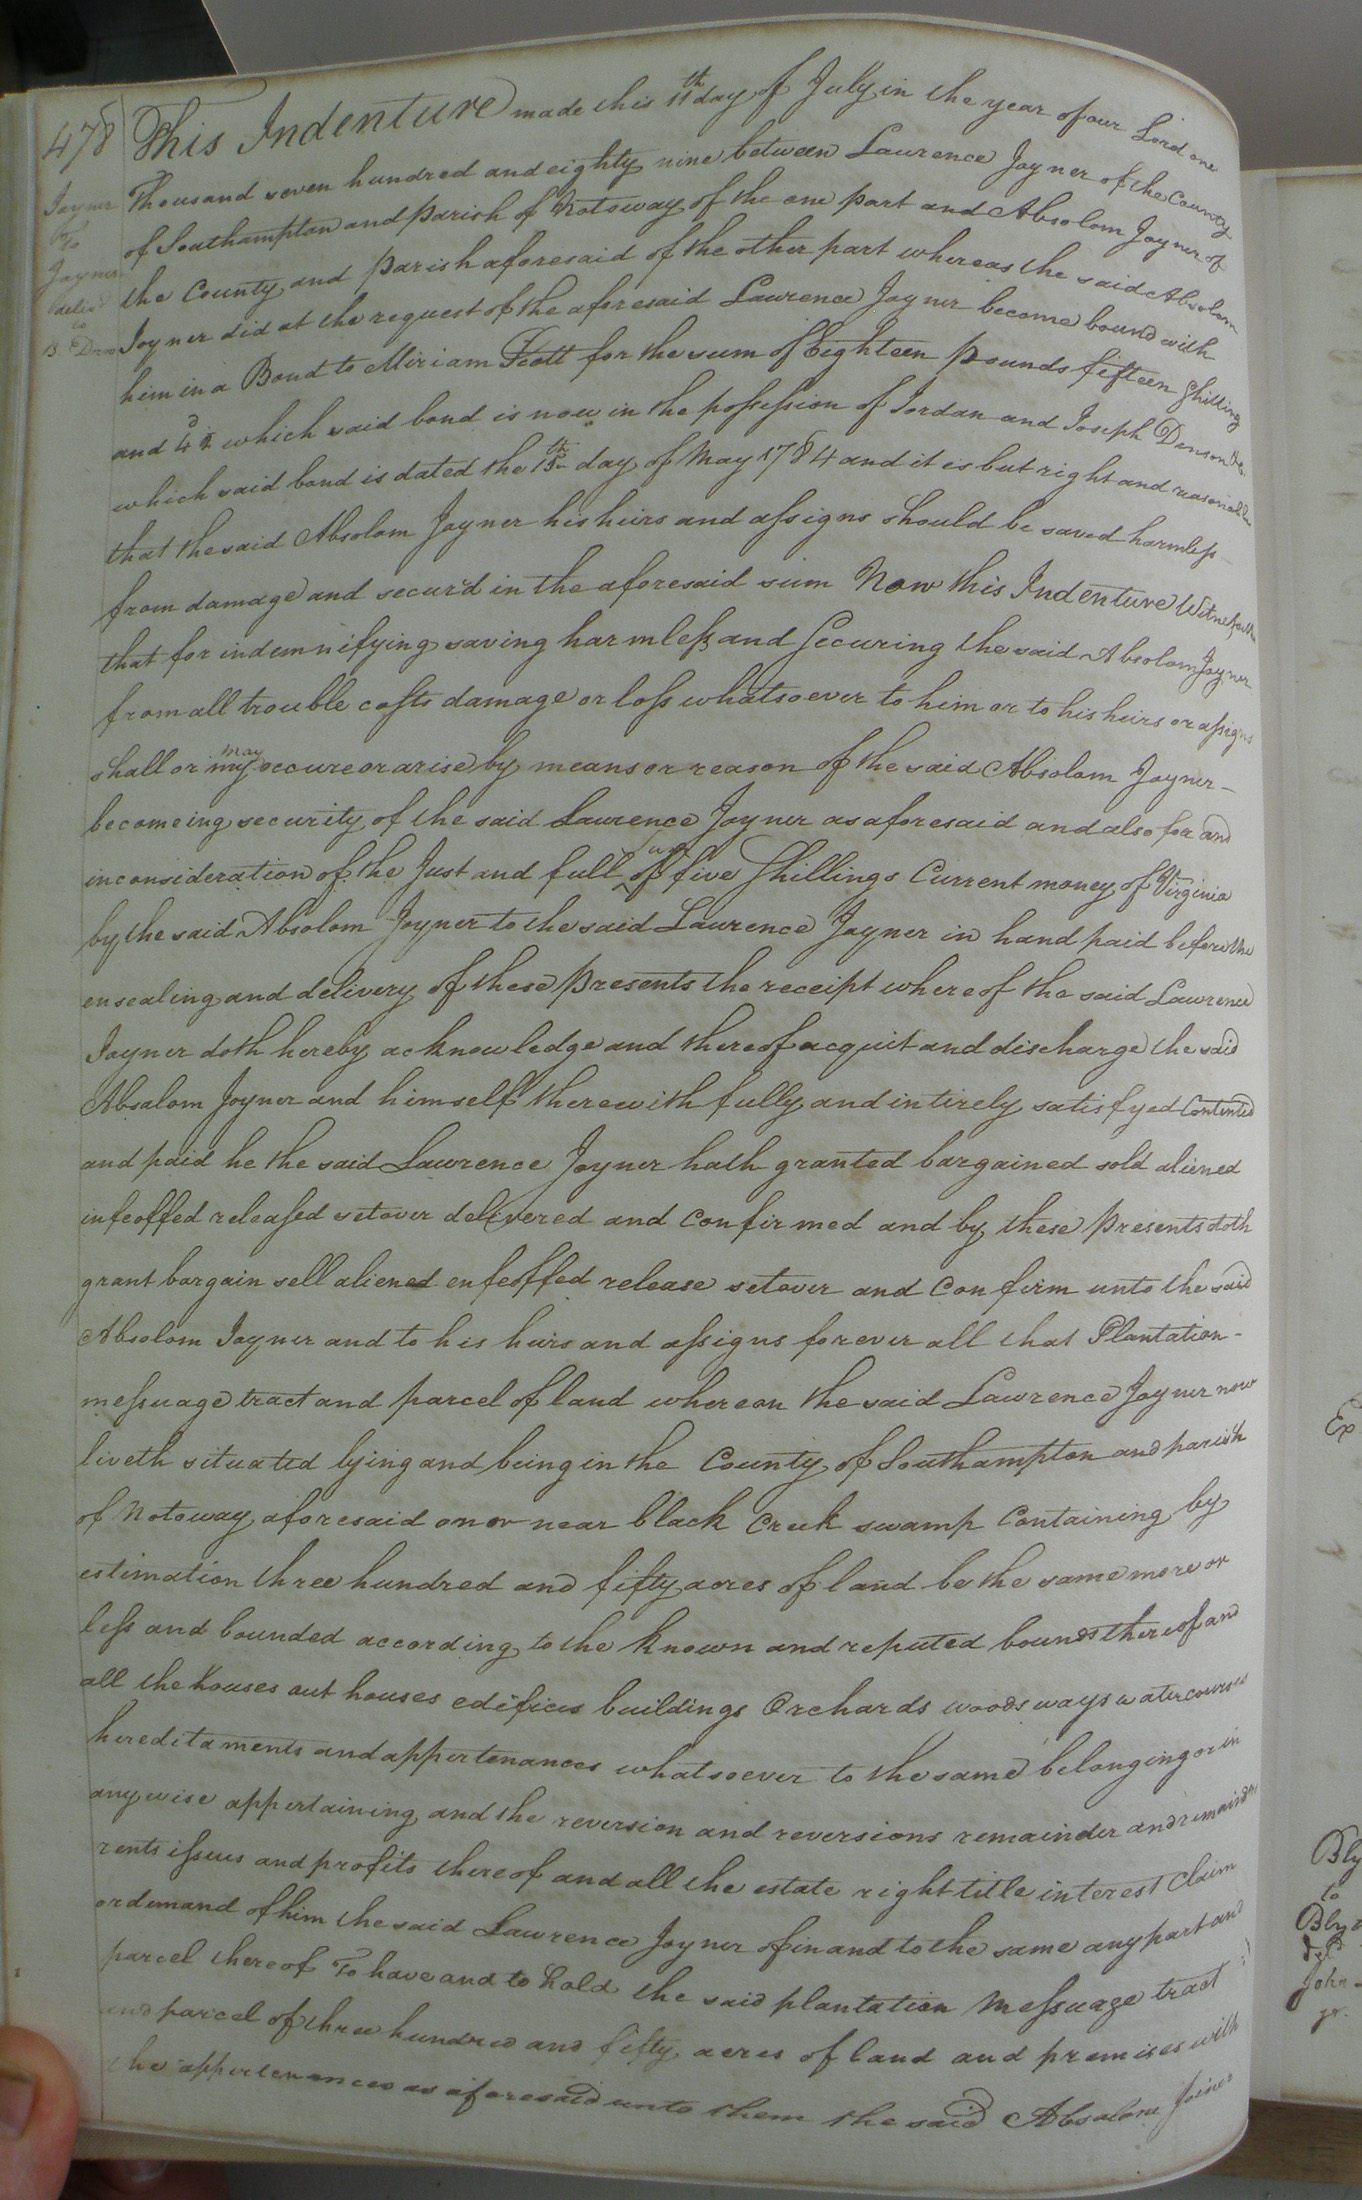 478
Joyner
To
Joyner
deliv'd
to
B. Drew
This Indenture made this 11th day of July in the year of our Lord one
Thousand seven hundred and eighty nine between Laurence Joyner of the County
of Southampton and Parish of Notoway of the one part and Absolom Joyner of
the County and Parish aforesaid of the other part whereas the said Absolom
Joyner did at the request of the aforesaid Laurence Joyner become bound with
him in a Bond to Miriam Scott for the sum of Eighteen Pounds fifteen Shilling
and 4d which said bond is now in the possession of Jordan and Joseph Denson
which said bond is dated the 15th day of May 1784 and it is but right and reasonable
that the said Absolom Joyner his heirs and assigns should be saved harmless
from damage and secur'd in the aforesaid sum Now this Indenture Witnesseth
that for indemnifying saving harmless and Securing the said Absolom Joyner
from all trouble costs damage or loss whatsoever to him or to his heirs or assigns
shall or my may occure or arise by means or reason of the said Absolom Joyner -
becomeing security of the said Laurence Joyner as aforesaid and also for and
inconsideration of the Just and full sum of five Shillings Current money of Virginia
by the said Absolom Joyner to the said Laurence Joyner in hand paid before the
ensealing and delivery of these Presents the receipt whereof the said Lawrence
Joyner doth hereby acknowledge and thereof acquit and discharge the said
Absalom Joyner and himself therewith fully and intirely satisfyed Contented
and paid he the said Lawrence Joyner hath granted bargained sold aliened
infeoffed released setover delivered and Confirmed and by these Presents doth
grant bargain sell aliened enfeoffed release setover and Confirm unto the said
Absolom Joyner and to his heirs and assigns forever all that Plantation -
messuage tract and parcel of land whereon the said Lawrence Joyner now
liveth situated lying and being in the County of Southampton and parish
of Notoway aforesaid on or near black Creek swamp Containing by
estimation three hundred and fifty acres of land be the same more or
less and bounded according to the known and reputed bounds thereof and
all the houses out houses edifices buildings Orchards woods ways watercourses
hereditaments and appertenances whatsoever to the same belonging or in
anywise appertaining and the reversion and reversions remainder and remainders
rents issues and profits thereof and all the estate right title interest Claim
or demand of him the said Lawrence Joyner of in and to the same any part and
parcel thereof To have and to hold the said plantation Messuage tract
and parcel of three hundred and fifty acres of land and premises with
the appertenances as aforesaid unto them the said Absalom Joiner
Ex
Bly
to
Bly
John
jr.